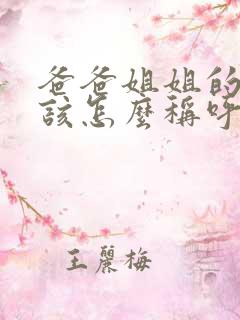 爸爸姐姐的
該怎麼稱呼
王麗梅